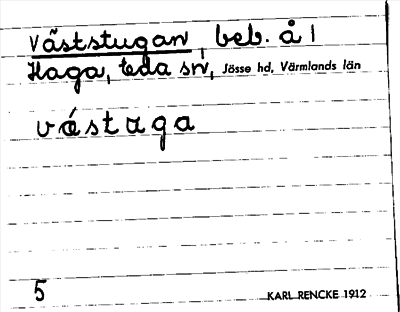 Väststugan, beb. å 1
Haga, Eda sn, Jösse hd, Värmlands län
våstuga
5 KARL RENCKE 1912